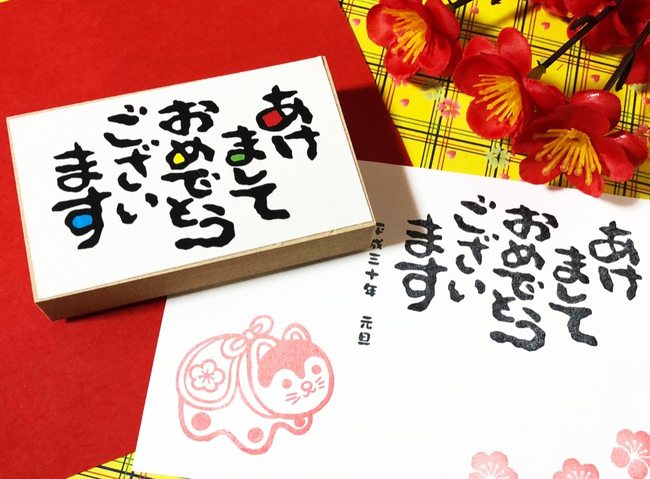 あけ
まして
おめでとう
ござい
ます
あけ
まして
おめでとう
ござい
ます
平成三十年 元旦